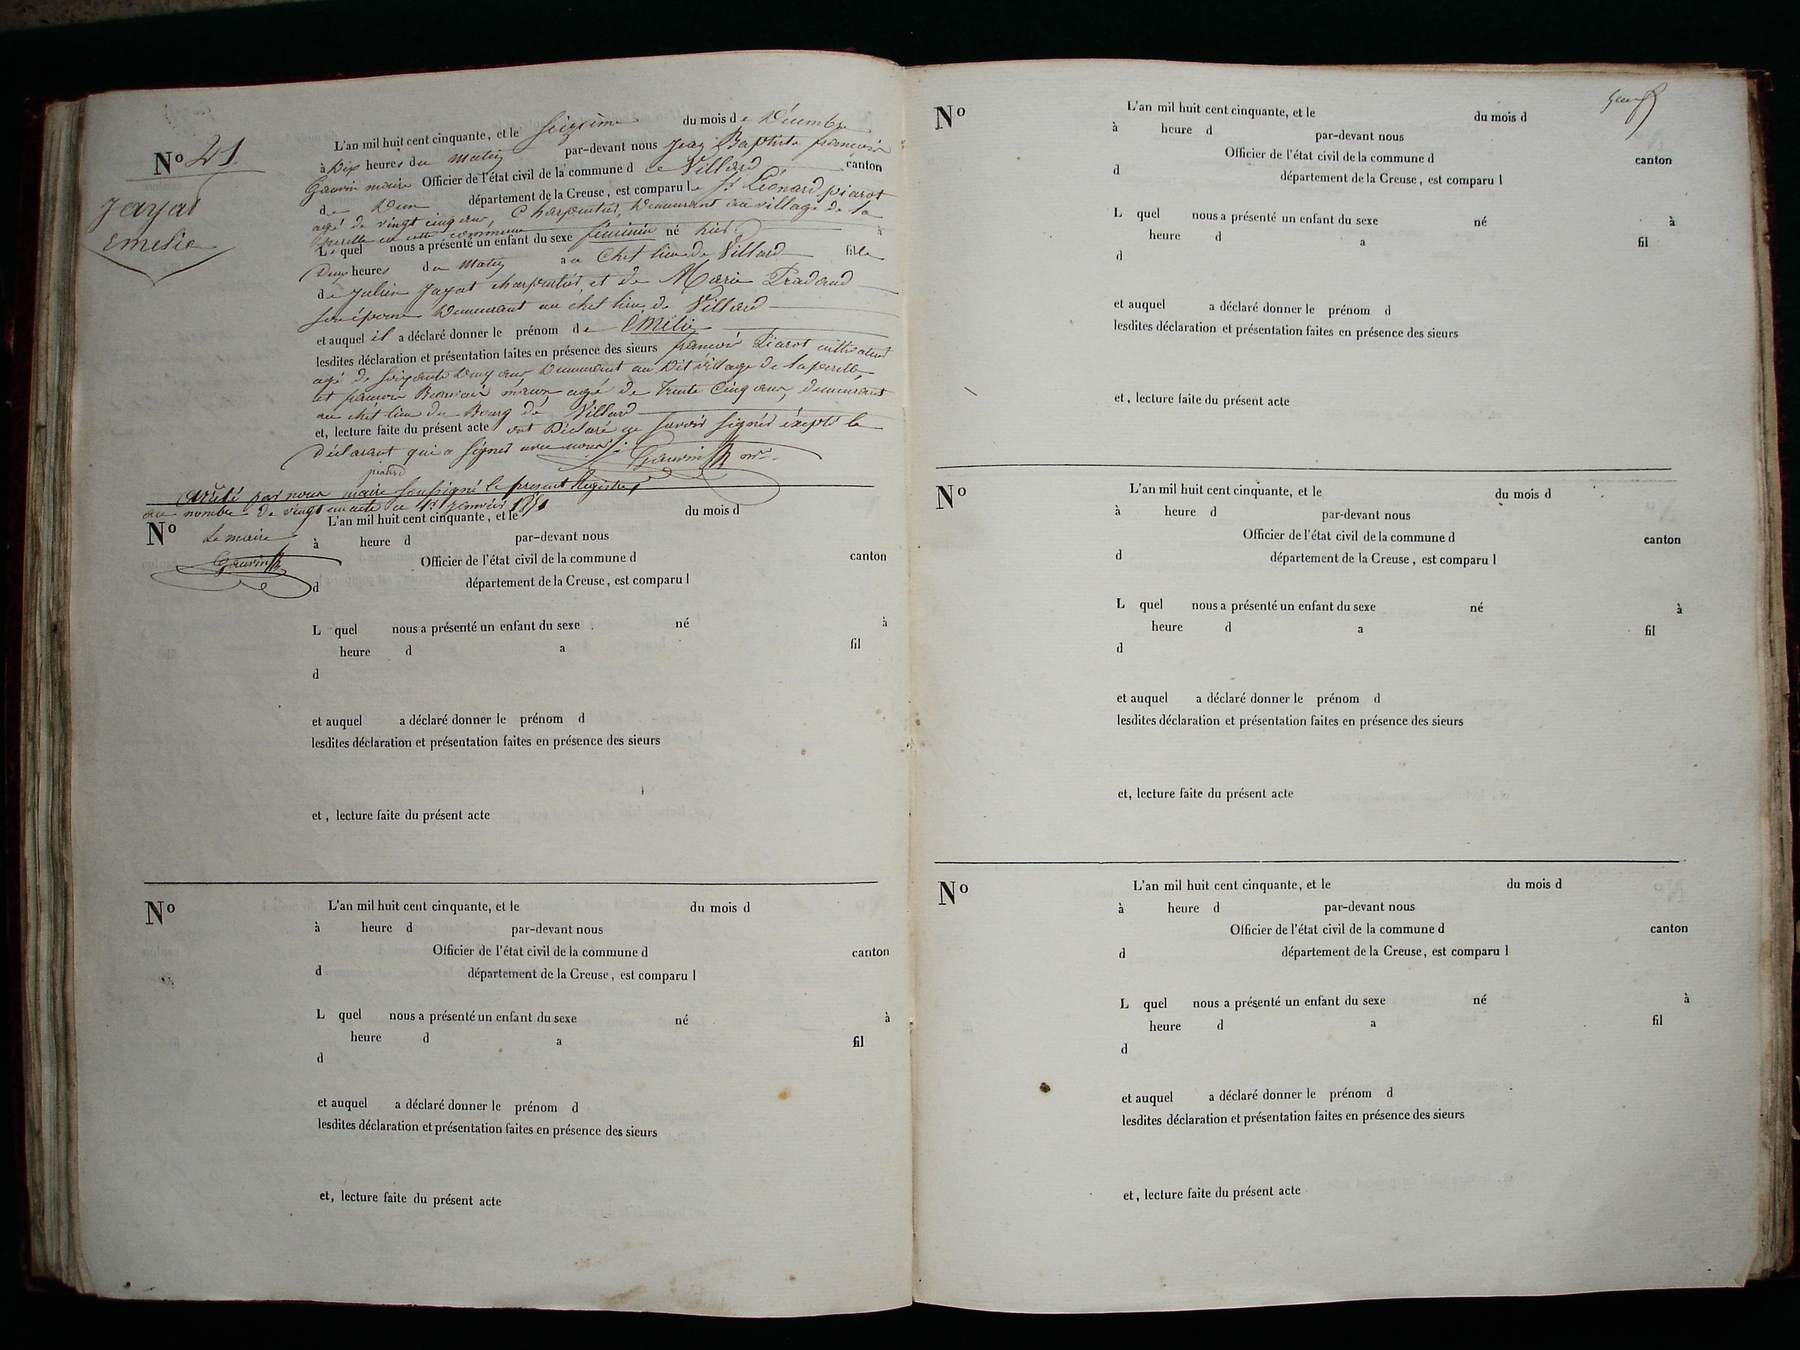 No 21
Jayat
Emelie
L'an mil huit cent cinquante, et le seizième du mois de Décembre
à Dix heures du matin par-devant nous Jean Baptiste francois
Gauvin maire Officier de l'état civil de la commune d e Villard canton
de Dun département de la Creuse, est comparu le Sr Léonard piarot
agé de vingt cinq ans, Charpentier, Demeurant au village de la
perelle en cette commune
Lequel nous a présenté un enfant du sexe féminin né hier à
Deux heures du matin a u Chef lieu de Villard fille
de Julien Jayat charpentier et de Marie Pradaud
son épouse Demeurant au chef lieu de Villard
et auquel il a déclaré donner le prénom de Emelie
lesdites déclaration et présentation faites en présence des sieurs francois Piarot cultivateur
agé de soixante Deux ans Demeurant au Dit village de laperelle
et francois maçon agé de Trente Cinq ans, demeurant
au chef lieu du Bourg de Villard
et, lecture faite du présent acte ont Déclaré ne savoir signer éxepté le
déclarant qui a signer avec nous
piarot Gauvin mre
Arrêté par nous maire soussigné le present Registre
au nombre de vingt un acte ce 1er janvier 1851
Le maire
Gauvin
No
L'an mil huit cent cinquante, et le du mois d
à heure d par-devant nous
Officier de l'état civil de la commune d canton
d département de la Creuse, est comparu l
L quel nous a présenté un enfant du sexe né à
heure d a fil
d
et auquel a déclaré donner le prénom d
lesdites déclaration et présentation faites en présence des sieurs
et, lecture faite du présent acte
No
L'an mil huit cent cinquante, et le du mois d
à heure d par-devant nous
Officier de l'état civil de la commune d canton
d département de la Creuse, est comparu l
L quel nous a présenté un enfant du sexe né à
heure d a fil
d
et auquel a déclaré donner le prénom d
lesdites déclaration et présentation faites en présence des sieurs
et, lecture faite du présent acte
No
L'an mil huit cent cinquante, et le du mois d
à heure d par-devant nous
Officier de l'état civil de la commune d canton
d département de la Creuse, est comparu l
L quel nous a présenté un enfant du sexe né à
heure d a fil
d
et auquel a déclaré donner le prénom d
lesdites déclaration et présentation faites en présence des sieurs
et, lecture faite du présent acte
No
L'an mil huit cent cinquante, et le du mois d
à heure d par-devant nous
Officier de l'état civil de la commune d canton
d département de la Creuse, est comparu l
L quel nous a présenté un enfant du sexe né à
heure d a fil
d
et auquel a déclaré donner le prénom d
lesdites déclaration et présentation faites en présence des sieurs
et, lecture faite du présent acte
No
L'an mil huit cent cinquante, et le du mois d
à heure d par-devant nous
Officier de l'état civil de la commune d canton
d département de la Creuse, est comparu l
L quel nous a présenté un enfant du sexe né à
heure d a fil
d
et auquel a déclaré donner le prénom d
lesdites déclaration et présentation faites en présence des sieurs
et, lecture faite du présent acte